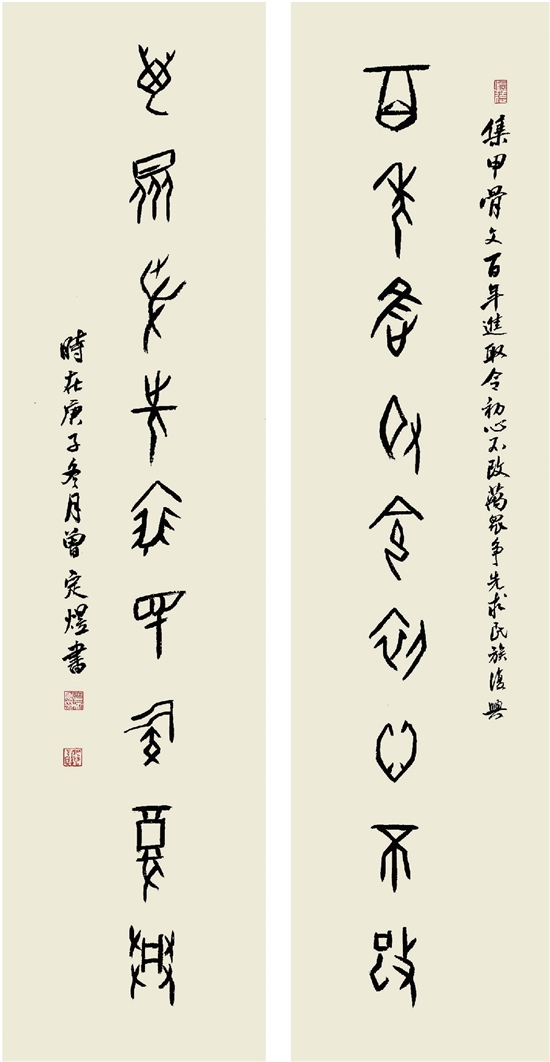 集甲骨文百年進取令初心不改萬眾争先求民族復興
百年進取令初心不改
萬眾争先求民族復興
時在庚子冬月曾定煜書